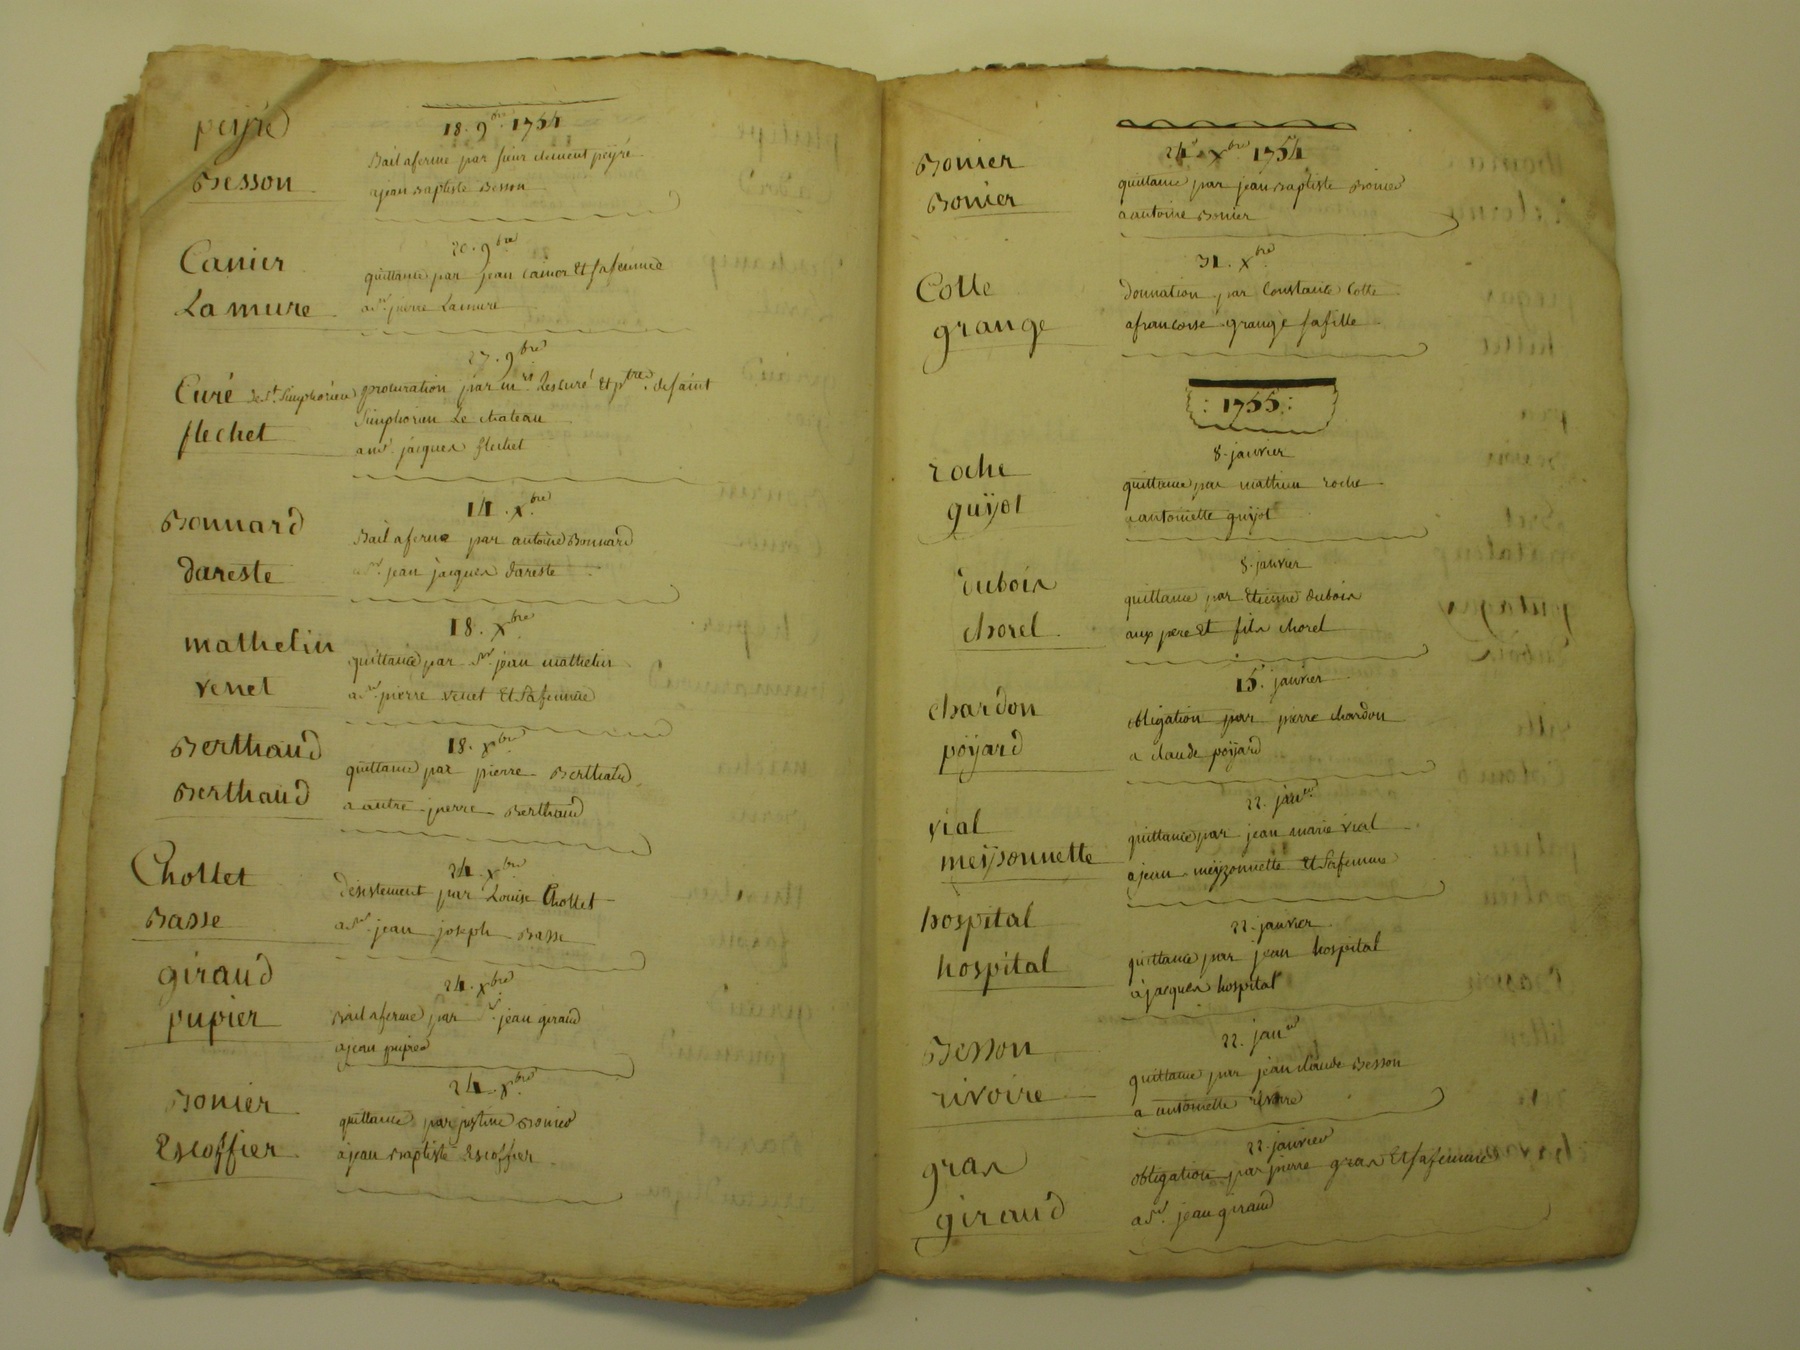 18. 9bre. 1754
peÿré
Besson
Bail aferme par sieur clement peÿré
ajean Baptiste Besson
20. 9bre
Canier
La mure
quittance par jean canier Et safemme
a Sr. pierre Lamure
27. 9bre
Curé de St. Simphorien
flechet
procuration par mre Lescuré Et ptre. desaint
Simphorien Le chateau
a mr. jacques flechet
14. Xbre.
Bonnard
dareste
Bail aferme par antoine Bonnard
a Sr. jean jacques dareste
18. Xbre
mathelin
venet
quittance par Sr. jean mathelin
a Sr. pierre venet Et Safemme
18. Xbre
Berthaud
Berthaud
quittance par pierre Berthaud
a autre pierre Berthaud
24. Xbre
Chollet
Basse
desistement par Louise Chollet
a Sr. jean joseph Basse
24. Xbre
giraud
pupier
Bail aferme par Sr. jean giraud
ajean pupier
24. Xbre.
Bonier
Escoffier
quittance par justine Bonier
ajean Baptiste Escoffier
24. Xbre 1754
Bonier
Bonier
quittance par jean Baptiste Bonier
a antoine Bonier
31. Xbre
Cotte
grange
donnation par Constance Cotte
afrancoise grange safille
: 1755 :
8. janvier
roche
guÿot
quittance par mathieu roche
a antoinette guÿot
8. janvier
dubois
chorel
quittance par Etienne dubois
aux pere Et fils chorel
15. janvier
chardon
poÿard
obligation par pierre chardon
a claude poÿard
22. janer
vial
meÿsonnette
quittance par jean marie vial
ajean meÿzonnette Et Safemme
22. janvier
hospital
hospital
quittance par jean hospital
àjacques hospital
22. janer
Besson
rivoire
quittance par jean claude Besson
a antoinette rivoire
22. janvier
gras
giraud
obligation par pierre gras Et safemme
a Sr. jean giraud